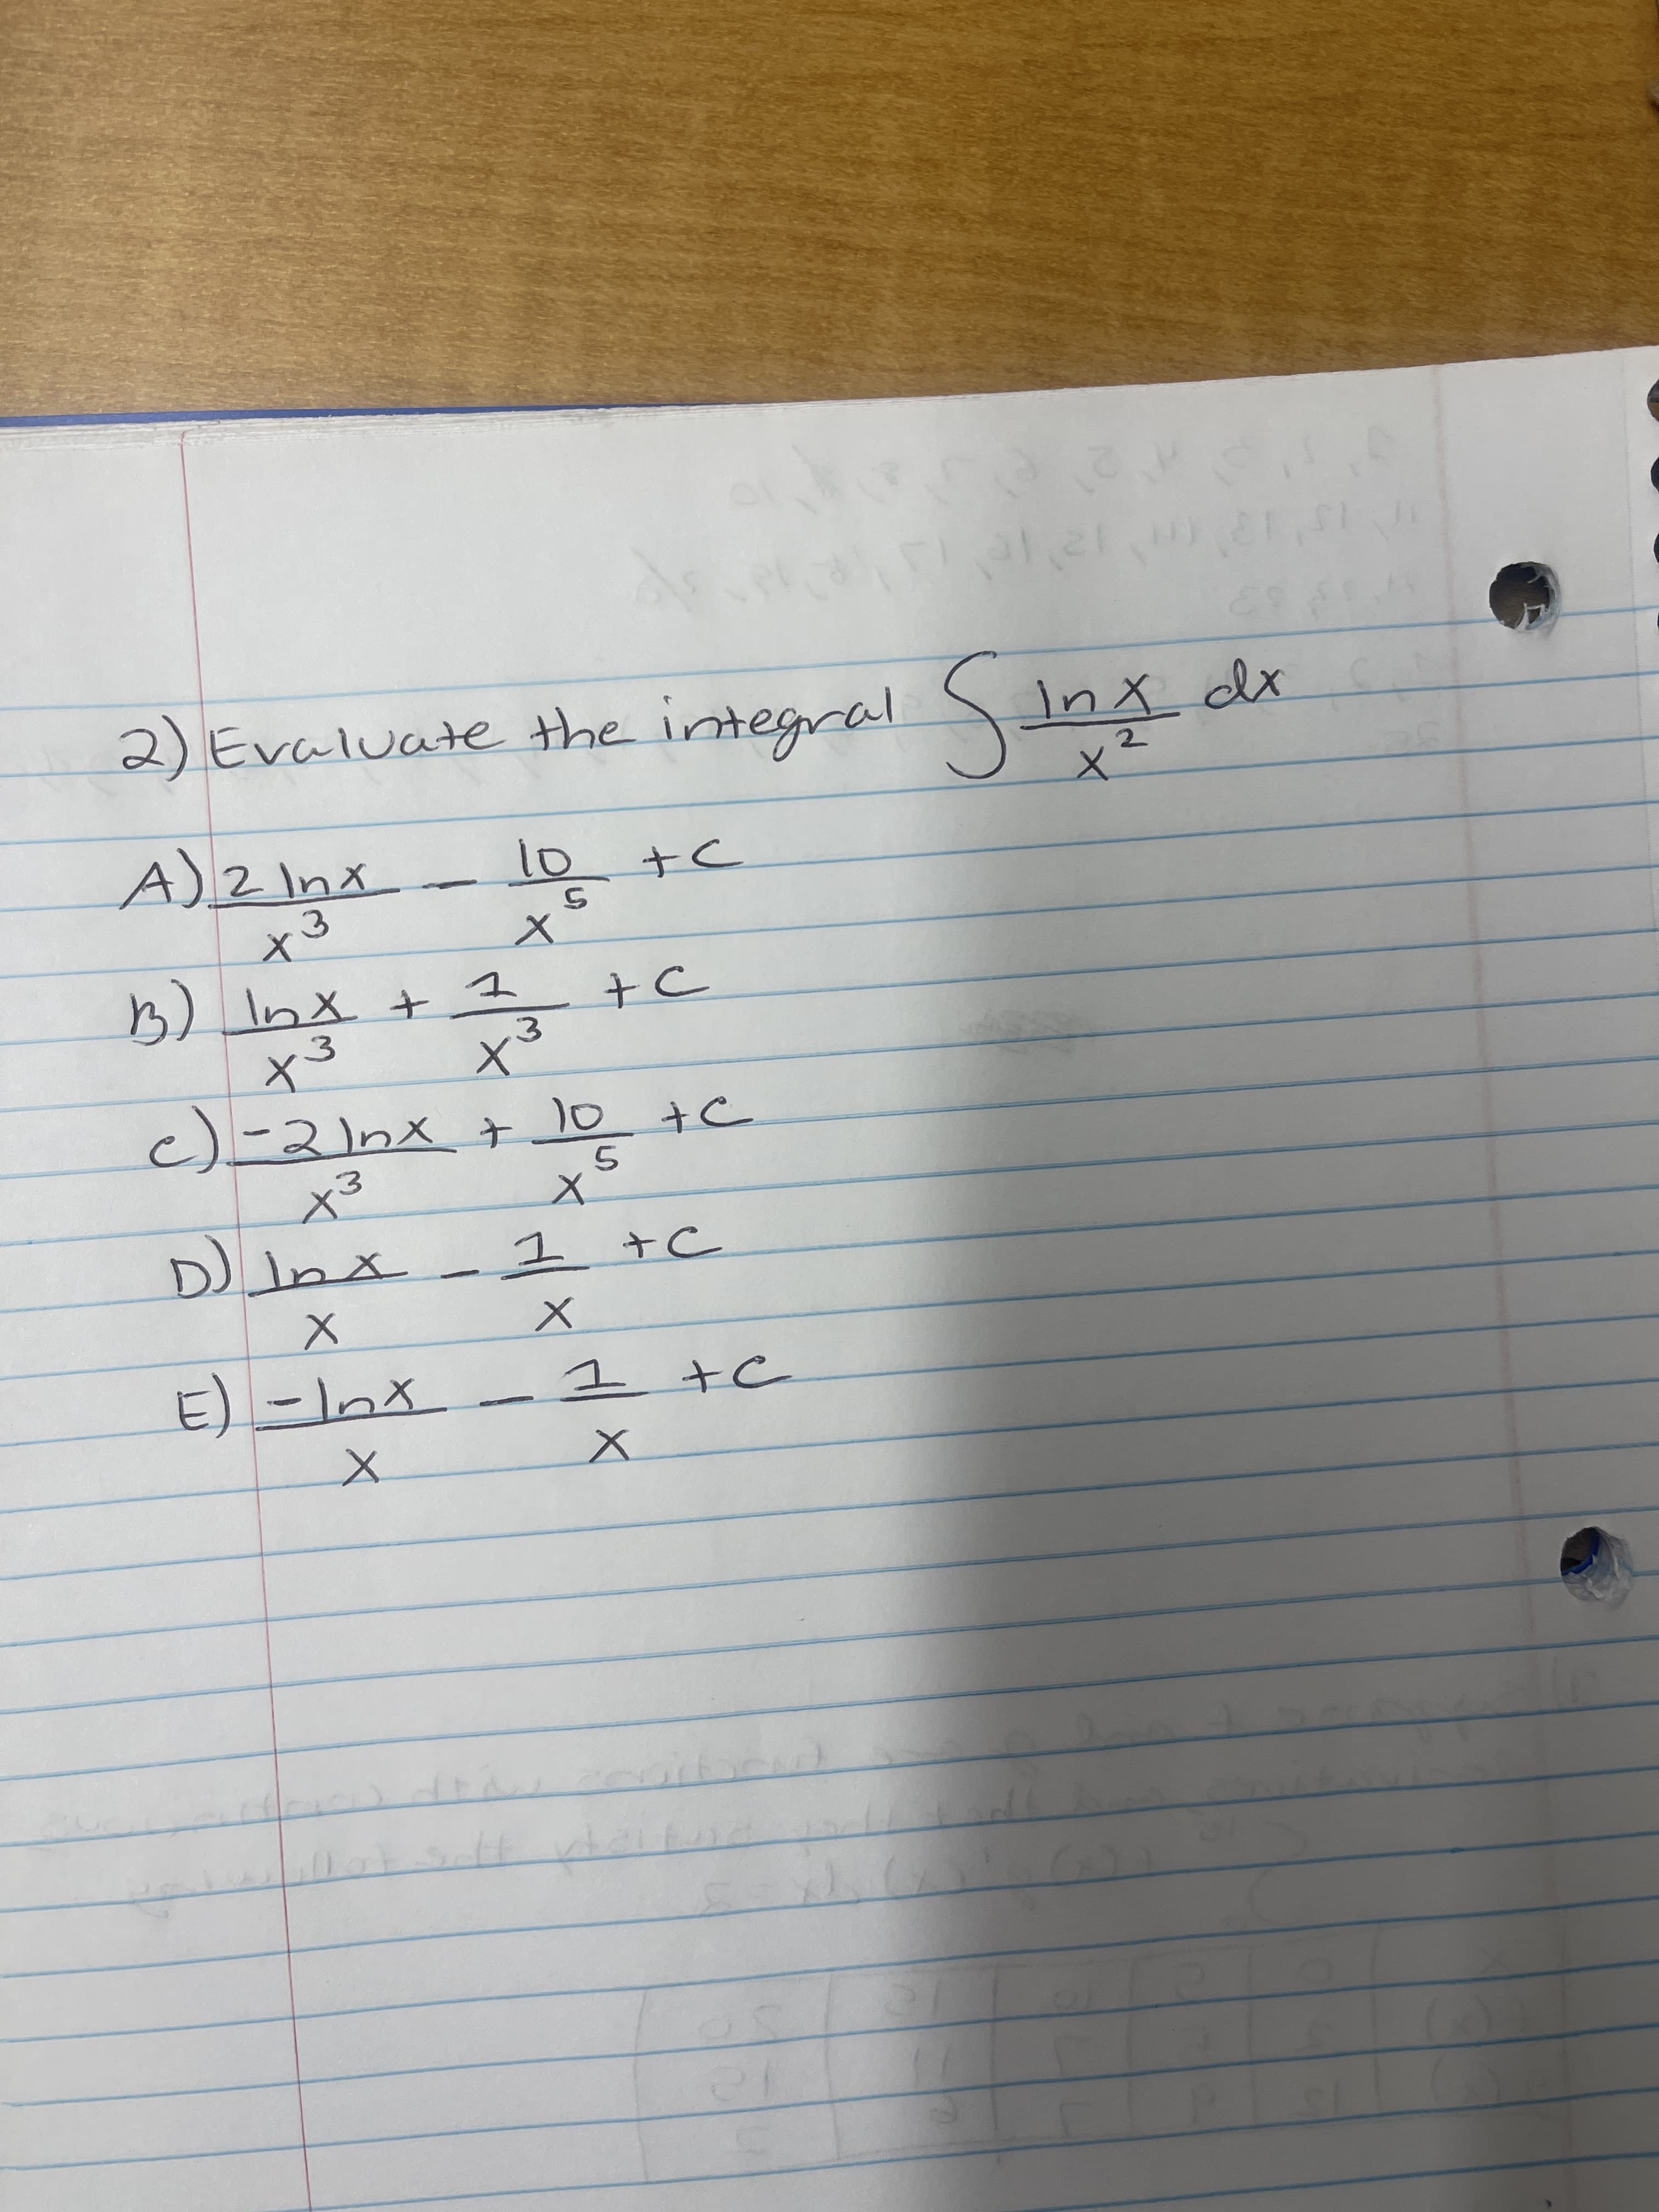 2) Evaluate the integral ∫ ln x / x² dx
A) 2 ln x / x³ - 10 / x⁵ + C
B) ln x / x³ + 1 / x³ + C
C) -2 ln x / x³ + 10 / x⁵ + C
D) ln x / x - 1 / x + C
E) -ln x / x - 1 / x + C